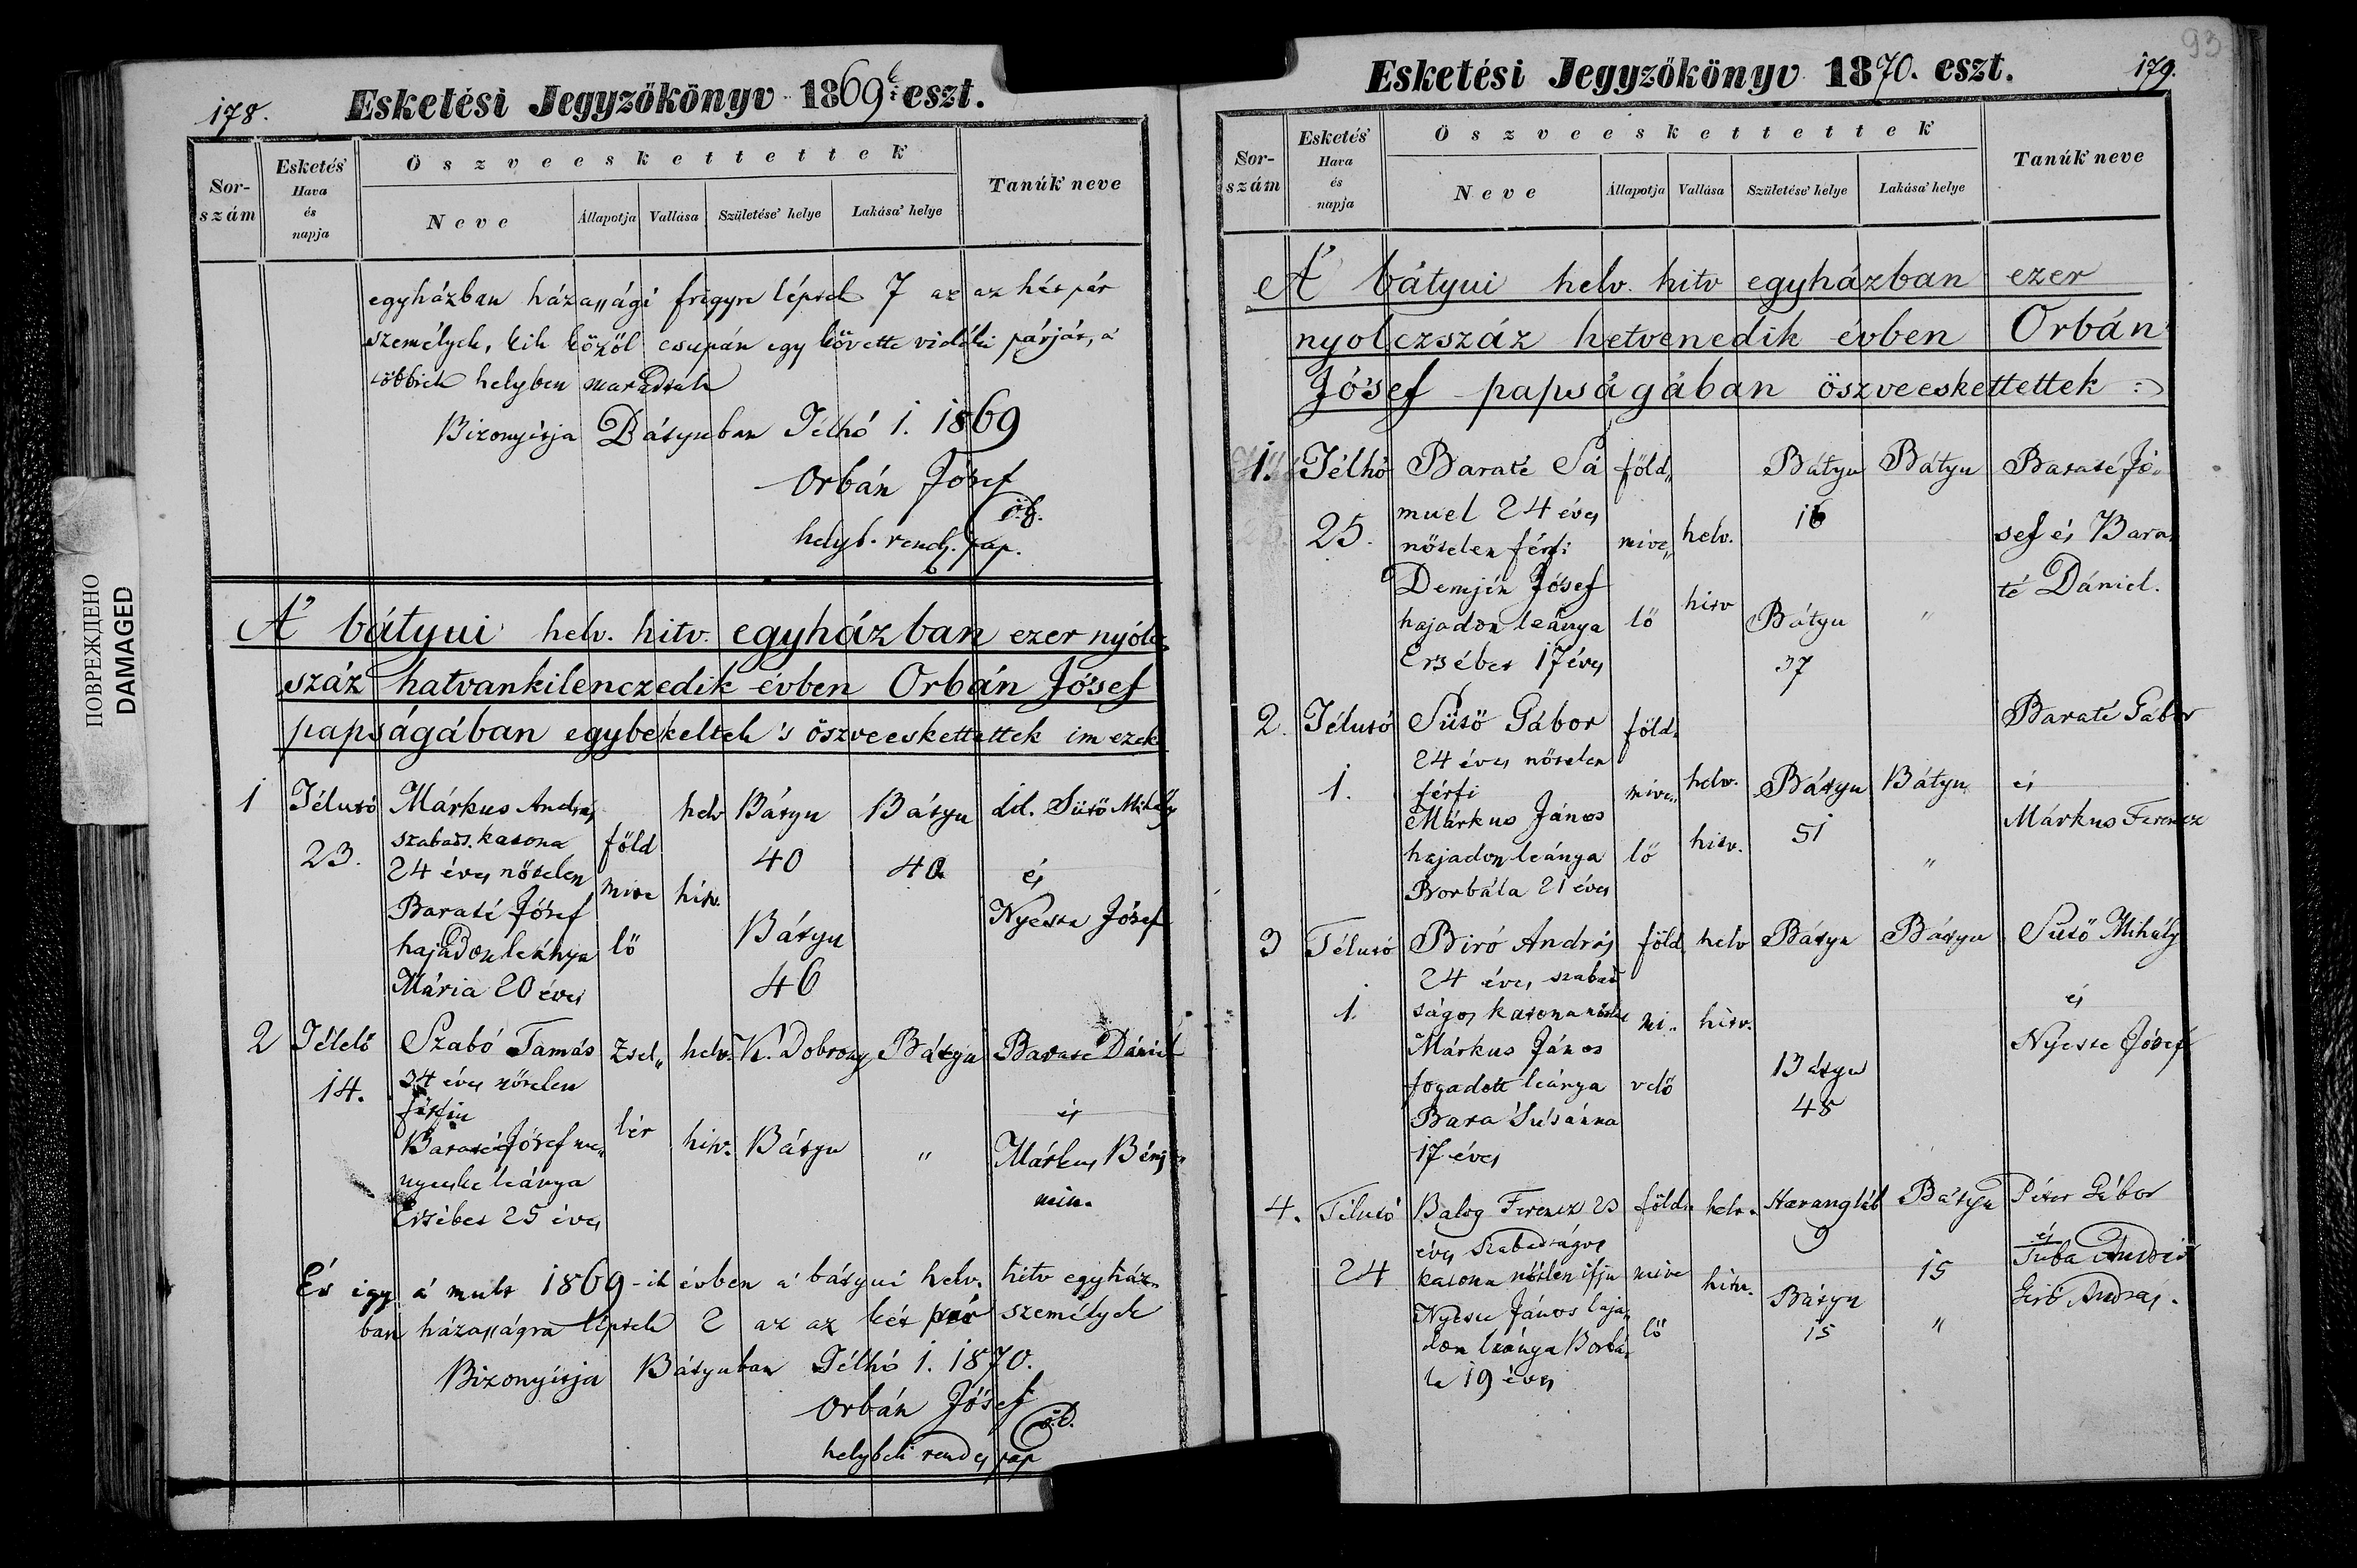 178.
Esketési Jegyzőkönyv 1869k eszt.
Sor-szám
Esketés' Hava és napja
Öszveeskettettek
Neve
Állapotja
Vallása
Születése' helye
Lakása' helye
Tanúk' neve
egyházban házassági frigyre léptek 7 az az hét pár
személyek, kik közöl csupán egy követte vidéki párját, a
többiek helyben maradtak
Bizonyitja Bátyuban Télhó 1. 1869
Orbán Jósef
helyb. rend. pap.
A' bátyui helv. hitv. egyházban ezer nyólcz
száz hatvankilenczedik évben Orbán Jósef
papságában egybekeltek 's öszveeskettettek im ezek
1 Télutó Márkus András helv Bátyu Bátyu id. Sütö Mihály
szabads. katona föld
23. 24 éves nőtelen 40 40 és
Baraté Jósef mive hitv. Nyeste Jósef
hajadon leánya lő Bátyu
Mária 20 éves 46
2 Télelő Szabó Tamás Zsel„ helv. K. Dobrony Bátyu Baraté Dániel
14. 34 éves nőtelen
férfiu és
Baraté Jósef me„ lér hitv. Bátyu „ Márkus Benj„
nyecske leánya min.
Ersébet 25 éves
És igy a' mult 1869-ik évben a' bátyui helv. hitv egyház„
ban házasságra léptek 2 az az két pár személyek
Bizonyitja Bátyuban Télhó 1. 1870.
Orbán Jósef
helybeli rendes pap
ПОВРЕЖДЕНО
DAMAGED
93
Esketési Jegyzőkönyv 1870. eszt.
179.
Sor-szám
Esketés' Hava és napja
Öszveeskettettek
Neve
Állapotja
Vallása
Születése' helye
Lakása' helye
Tanúk' neve
A' bátyui helv. hitv egyházban ezer
nyolczszáz hetvenedik évben Orbán
Jósef papságában öszveeskettettek :
1. Télhó Baraté Sá föld„ Bátyu Bátyu Baraté Jó„
25. muel 24 éves helv. 16 sef és Bara„
nőtelen férfi mive„
Demjén Jósef hitv té Dániel.
hajadon leánya lő Bátyu „
Ersébet 17 éves 37
2. Télutó Sütö Gábor föld„ Baraté Gábor
24 éves nőtelen
1. férfi mive„ helv. Bátyu Bátyu és
Márkus János 51 Márkus Ferencz
hajadon leánya lő hitv. „
Borbála 21 éves
3 Télutó Biró András föld„ helv Bátyu Bátyu Sütö Mihály
24 éves szabad
1. ságos katona nőtlen mi„ hitv. és
Márkus János Nyeste Jósef
fogadott leánya velő Bátyu
Bara Susánna 48
17 éves
4. Télutó Balog Ferencz 23 föld„ helv. Harangláb Bátyu Péter Gábor
éves szabadságos 9 és
24 katona nőtlen ifju mive hitv. 15 Tuba András
Nyeste János haja„ Bátyu Gerő András.
don leánya Borbá„ lő 15 „
la 19 éves